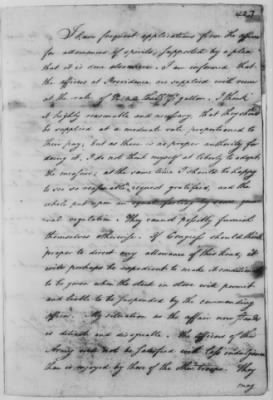 427
I have frequent applications from the officers
for allowances of spirits, supported by a plea
that it is done elsewhere. I am informed that
the officers at Providence are supplied with rum
at the rate of gallon. I think
it highly reasonable and necessary, that they should
be supplied at a moderate rate proportioned to
their pay; but as there is no proper authority for
doing it, I do not think myself at liberty to adopt
the measure; at the same time I should be happy
to see so reasonable request gratified, and the
whole put upon an equal footing by some gene
ral regulation. They cannot possibly furnish
themselves otherwise. If Congress should think
proper to direct any allowance of this kind, it
will perhaps be expedient to make it conditional
to be given when the stock in store will permit
and liable to be suspended by the commanding
officer. My situation as the affair now stands
is delicate and disagreeable. The officers of this
Army will not be satisfied with less indulgence
than is enjoyed by those of the other troops. They
may